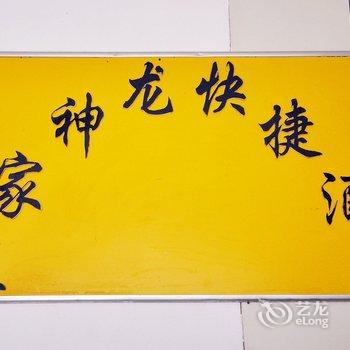 家神龙快捷酒
艺龙
eLong